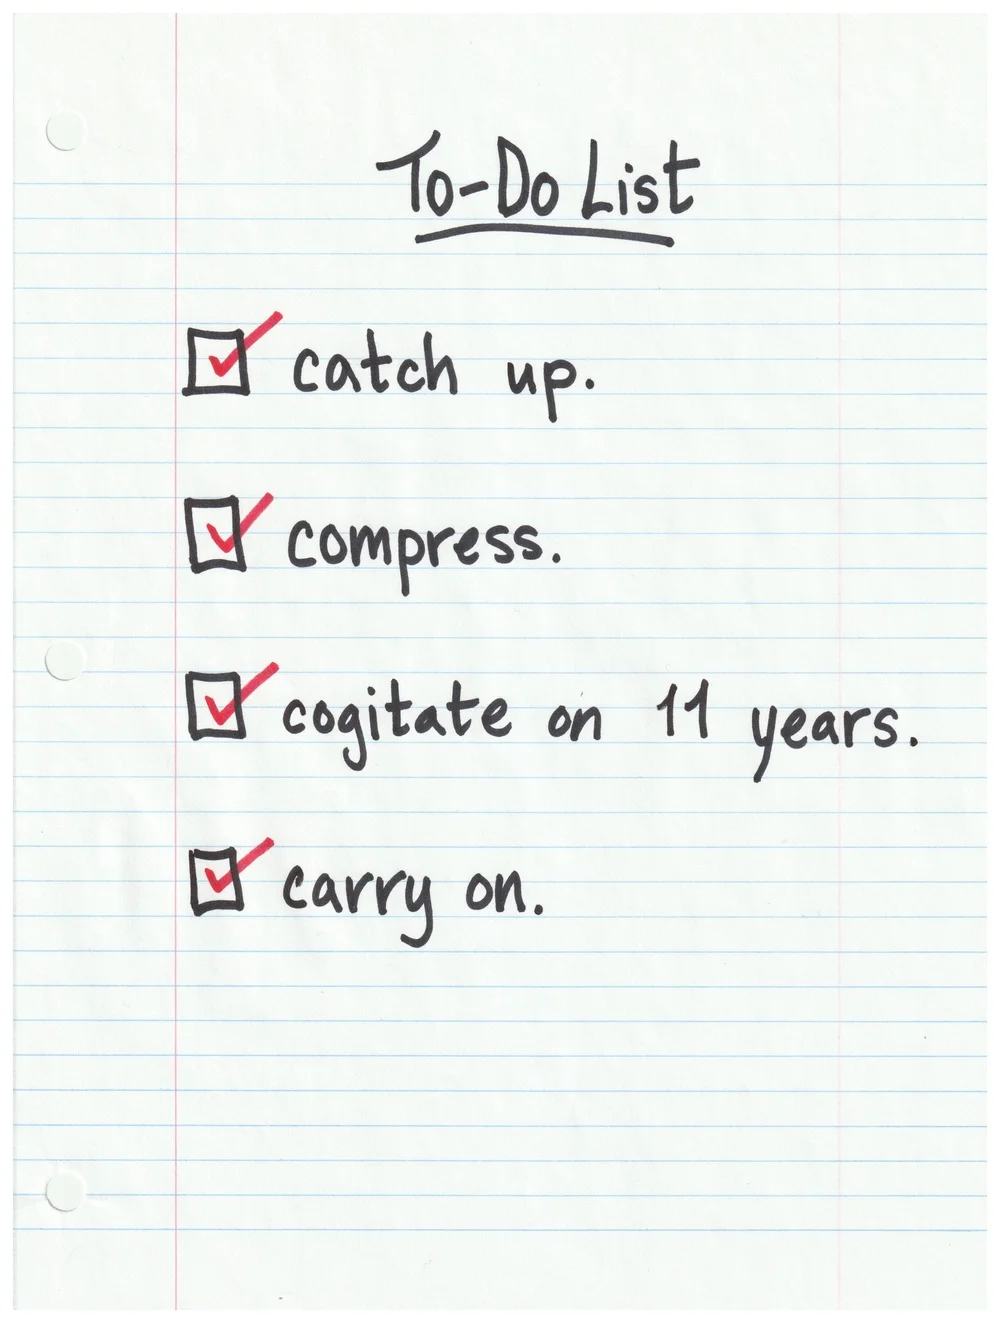 To-Do List
catch up.
compress.
cogitate on 11 years.
carry on.